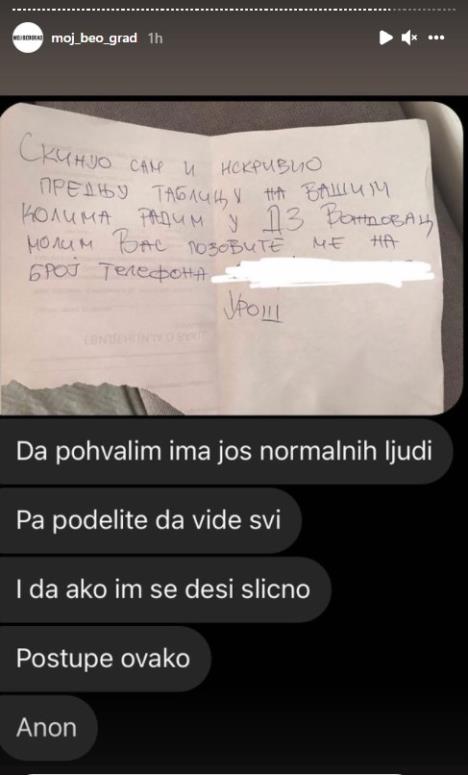 MOJ BEOGRAD
moj_beo_grad 1h
Скинуо сам и искривио
предњу таблицу на вашим
колима радим у ДЗ Вождовац
молим Вас позовите ме на
број телефона
Урош
Da pohvalim ima jos normalnih ljudi
Pa podelite da vide svi
I da ako im se desi slicno
Postupe ovako
Anon